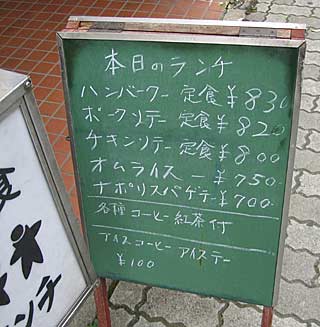 本日のランチ
ハンバーグー 定食 ¥830
ポークソテー 定食 ¥820
チキンソテー 定食 ¥800
オムライスー ¥750.
ナポリスパゲテー ¥700.
各種 コーヒー 紅茶付
アイスコーヒー アイステー
¥100
ンチ